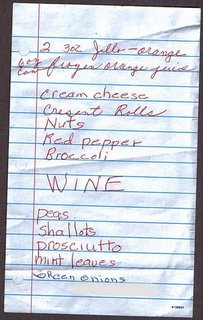 2 3oz Jello - orange
6oz can frozen orange juice
cream cheese
Cresent Rolls
Nuts
Red pepper
Broccoli
WINE
peas
shallots
prosciutto
mint leaves
green onions